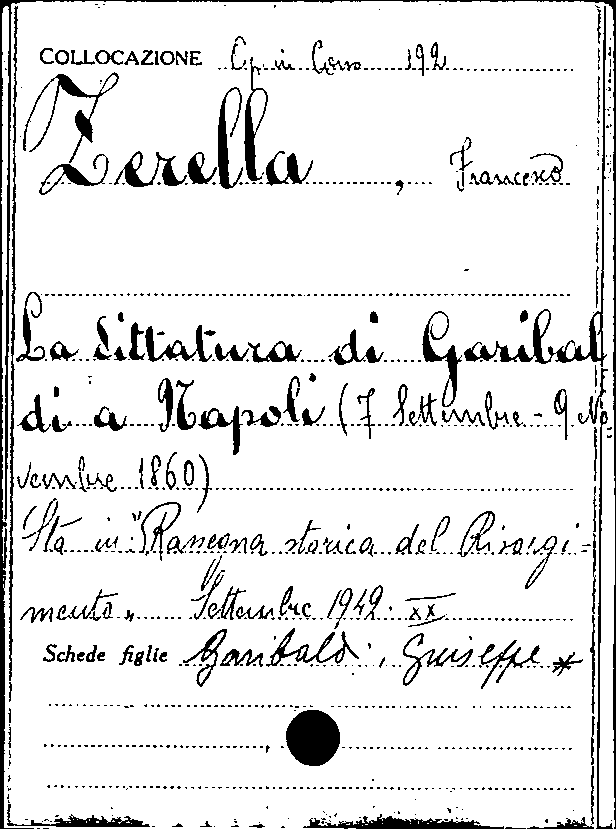 COLLOCAZIONE Op. in Corso 192
Zerella, Francesco
La Dittatura di Garibal
di a Napoli (7 Settembre - 9 No
vembre 1860)
Sta in: "Rassegna storica del Risorgi=
mento" Settembre 1942. XX
Schede figlie Garibaldi, Giuseppe *